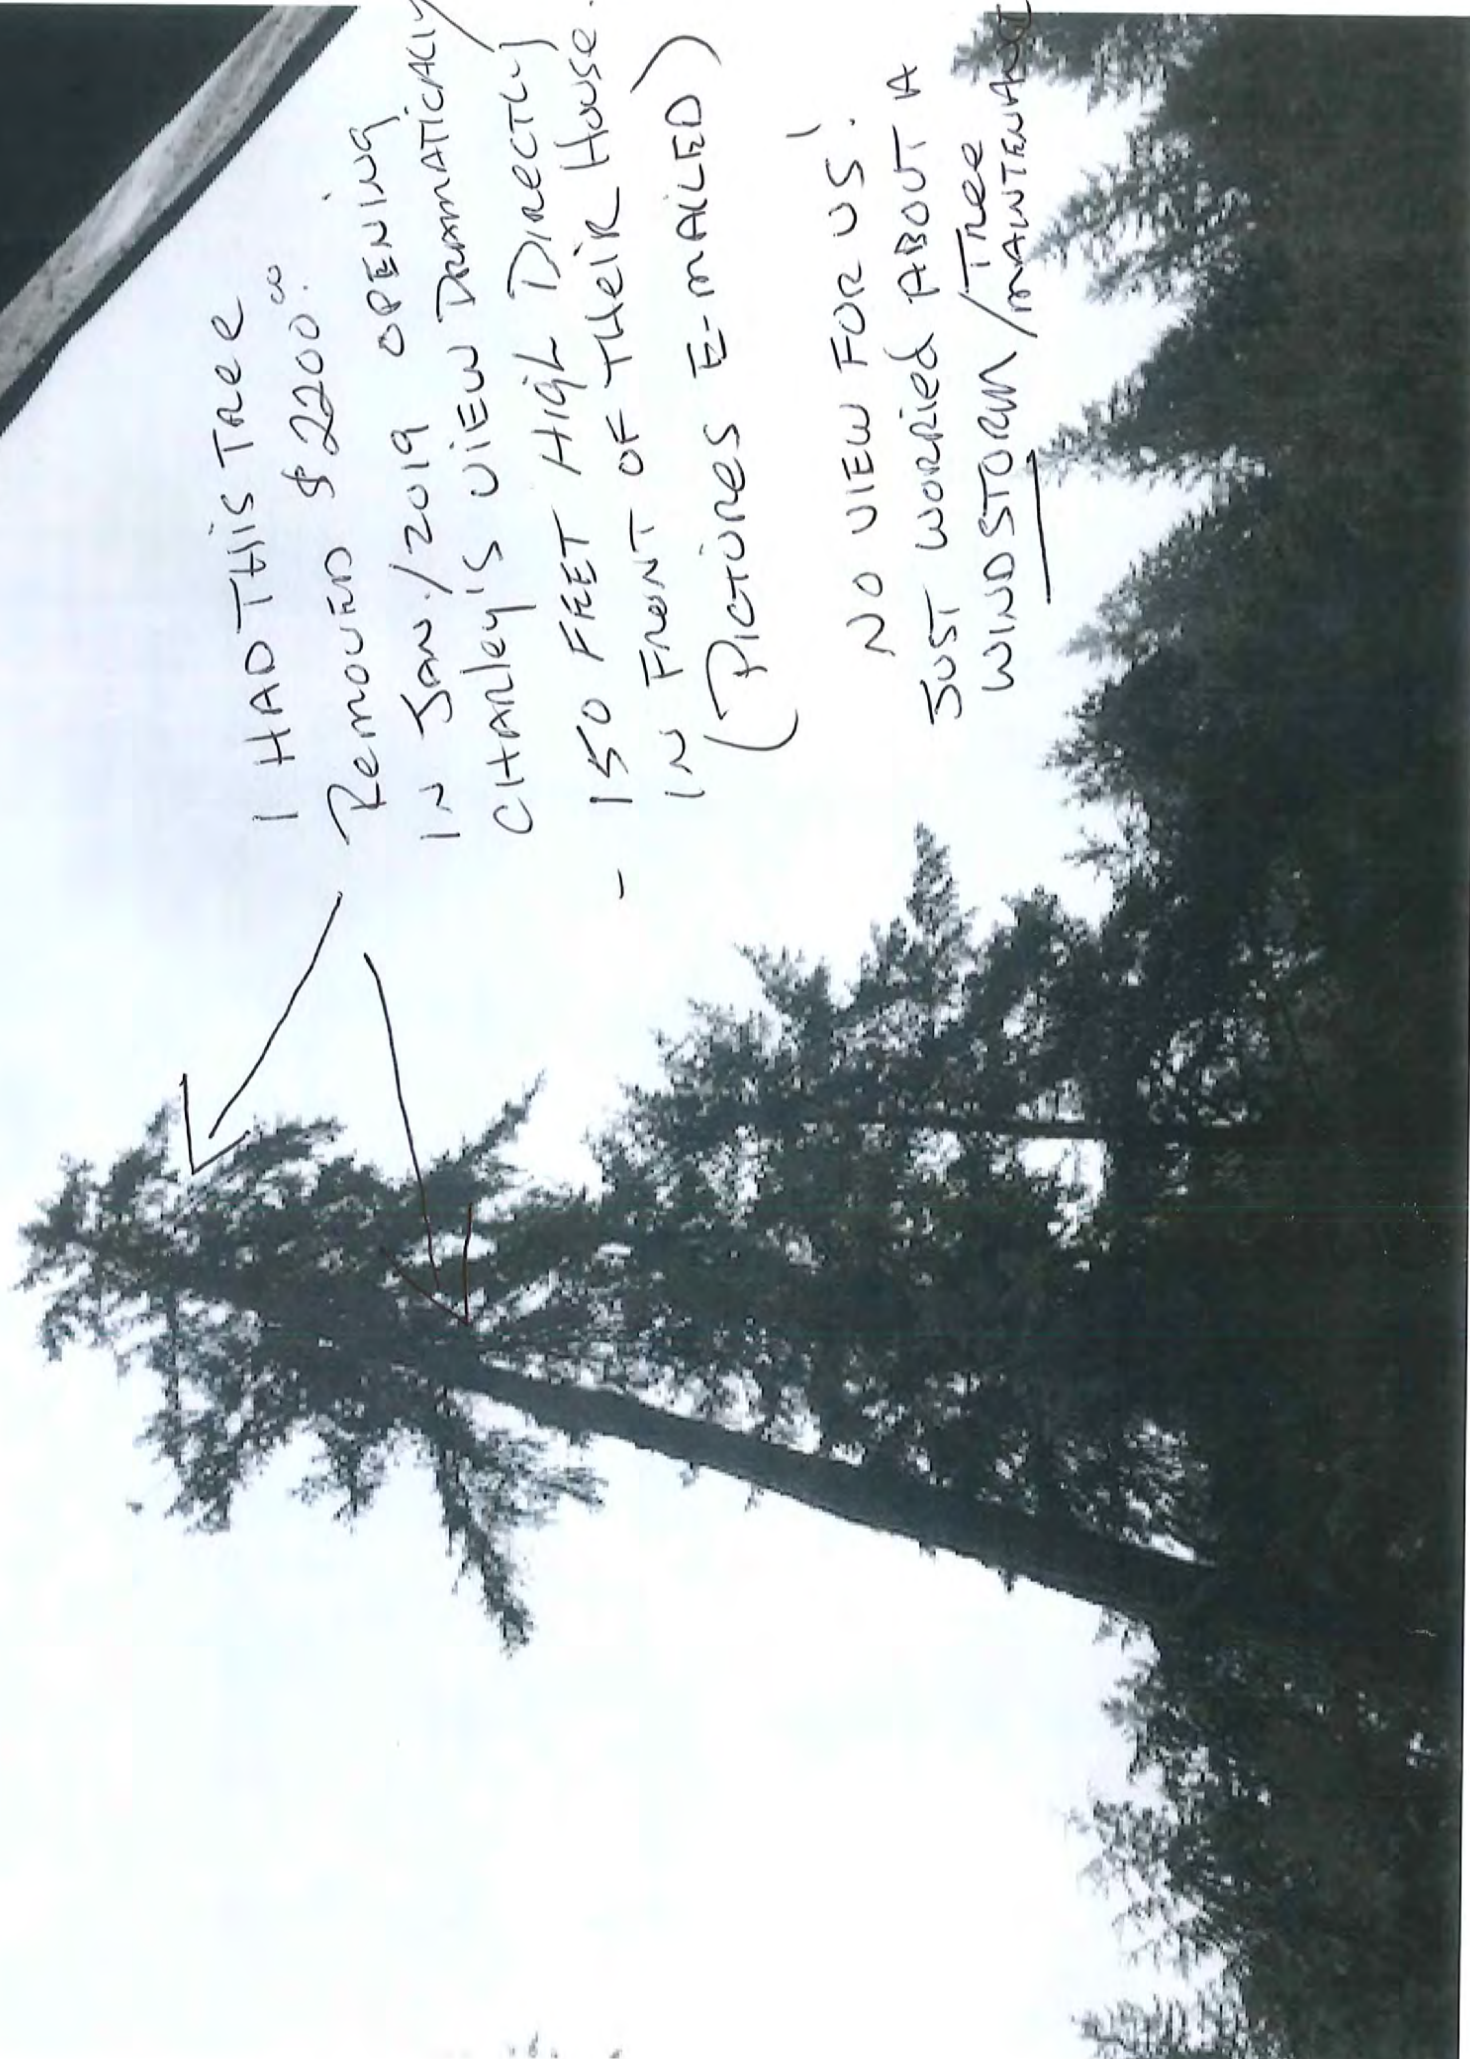 I HAD THIS TREE
REMOVED $2200.00
IN JAN./2019 OPENING
CHARLEY'S VIEW DRAMATICALLY
- 150 FEET HIGH DIRECTLY
IN FRONT OF THEIR HOUSE.
(PICTURES E-MAILED)
NO VIEW FOR US!
JUST WORRIED ABOUT A
WINDSTORM / TREE
MAINTENANCE